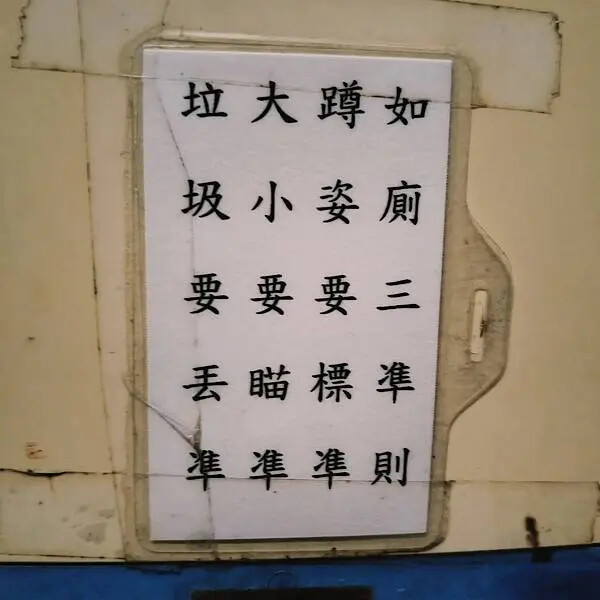 如廁三準則
蹲姿要標準
大小要瞄準
垃圾要丟準